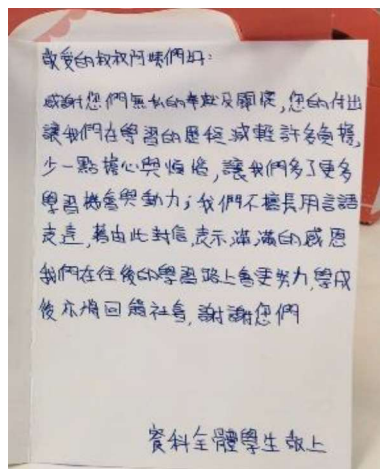 敬愛的叔叔阿姨們好:
感謝您們無私的奉獻及關懷,您的付出
讓我們在學習的歷程減輕許多負擔,
少一點擔心與煩惱,讓我們多了更多
學習機會與動力;我們不擅長用言語
表達,藉由此封信,表示滿滿的感恩
我們在往後的學習路上會更努力,學成
後亦將回饋社會,謝謝您們
資科全體學生敬上